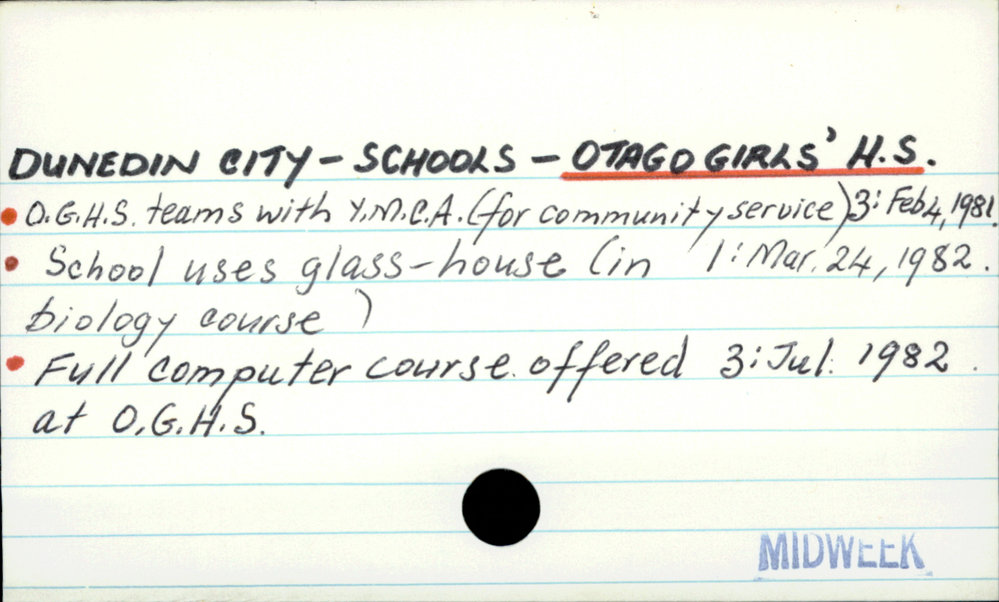 DUNEDIN CITY - SCHOOLS - OTAGO GIRLS' H.S.
• O.G.H.S. teams with Y.M.C.A. (for community service) 3: Feb 4, 1981.
• School uses glass-house (in 1: Mar. 24, 1982.
biology course)
• Full computer course offered 3: Jul. 1982.
at O.G.H.S.
MIDWEEK